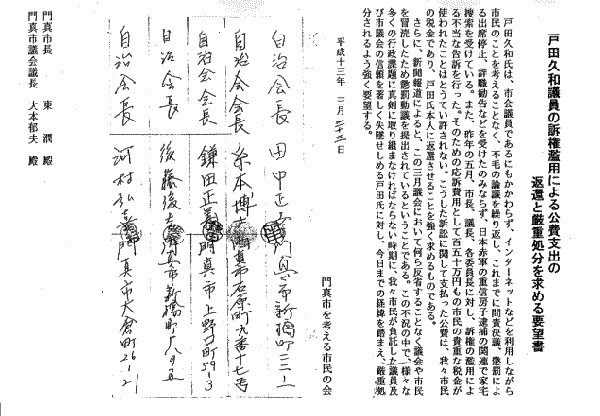 戸田久和議員の訴権濫用による公費支出の
返還と厳重処分を求める要望書
戸田久和氏は、市会議員であるにもかかわらず、インターネットなどを利用しながら
市民のことを考えることなく、不毛の論議を繰り返し、これまでに問責決議、懲罰によ
る出席停止、辞職勧告などを受けたのみならず、日本赤軍の重信房子逮捕の関連で家宅
捜索を受けている。また、昨年の五月、市長、議長、各委員長に対し、訴権の濫用によ
る不当な告訴を行った。そのための応訴費用として百五十万円もの市民の貴重な税金が
使われたことはとうてい許されない。こうした訴訟に関して支払った公費は、我々市民
の税金であり、戸田氏本人に返還させることを強く求めるものである。
さらに、新聞報道によると、この三月議会において何ら反省することなく議会や市民
を冒涜したため懲罰動議を提出されているということである。この不況の中で、様々な
多くの行政課題に真剣に取り組まなければならない時期に、我々市民が負託した議員及
び市議会の信頼を著しく失墜せしめる戸田氏に対し、今日までの経緯を踏まえ、厳重処
分されるよう強く要望する。
平成十三年 三月二十三日
門真市を考える市民の会
自治会長 田中正 真市新橋町三三
自治会会長 本博 門真市石原町九番十七号
自治会会長 鎌田正 門真市上野口町59-3
自治会長 後藤俊 真市新橋町
自治会長 河村弘 真市大倉町26-12
門真市長 東 潤 殿
門真市議会議長 大本郁夫 殿